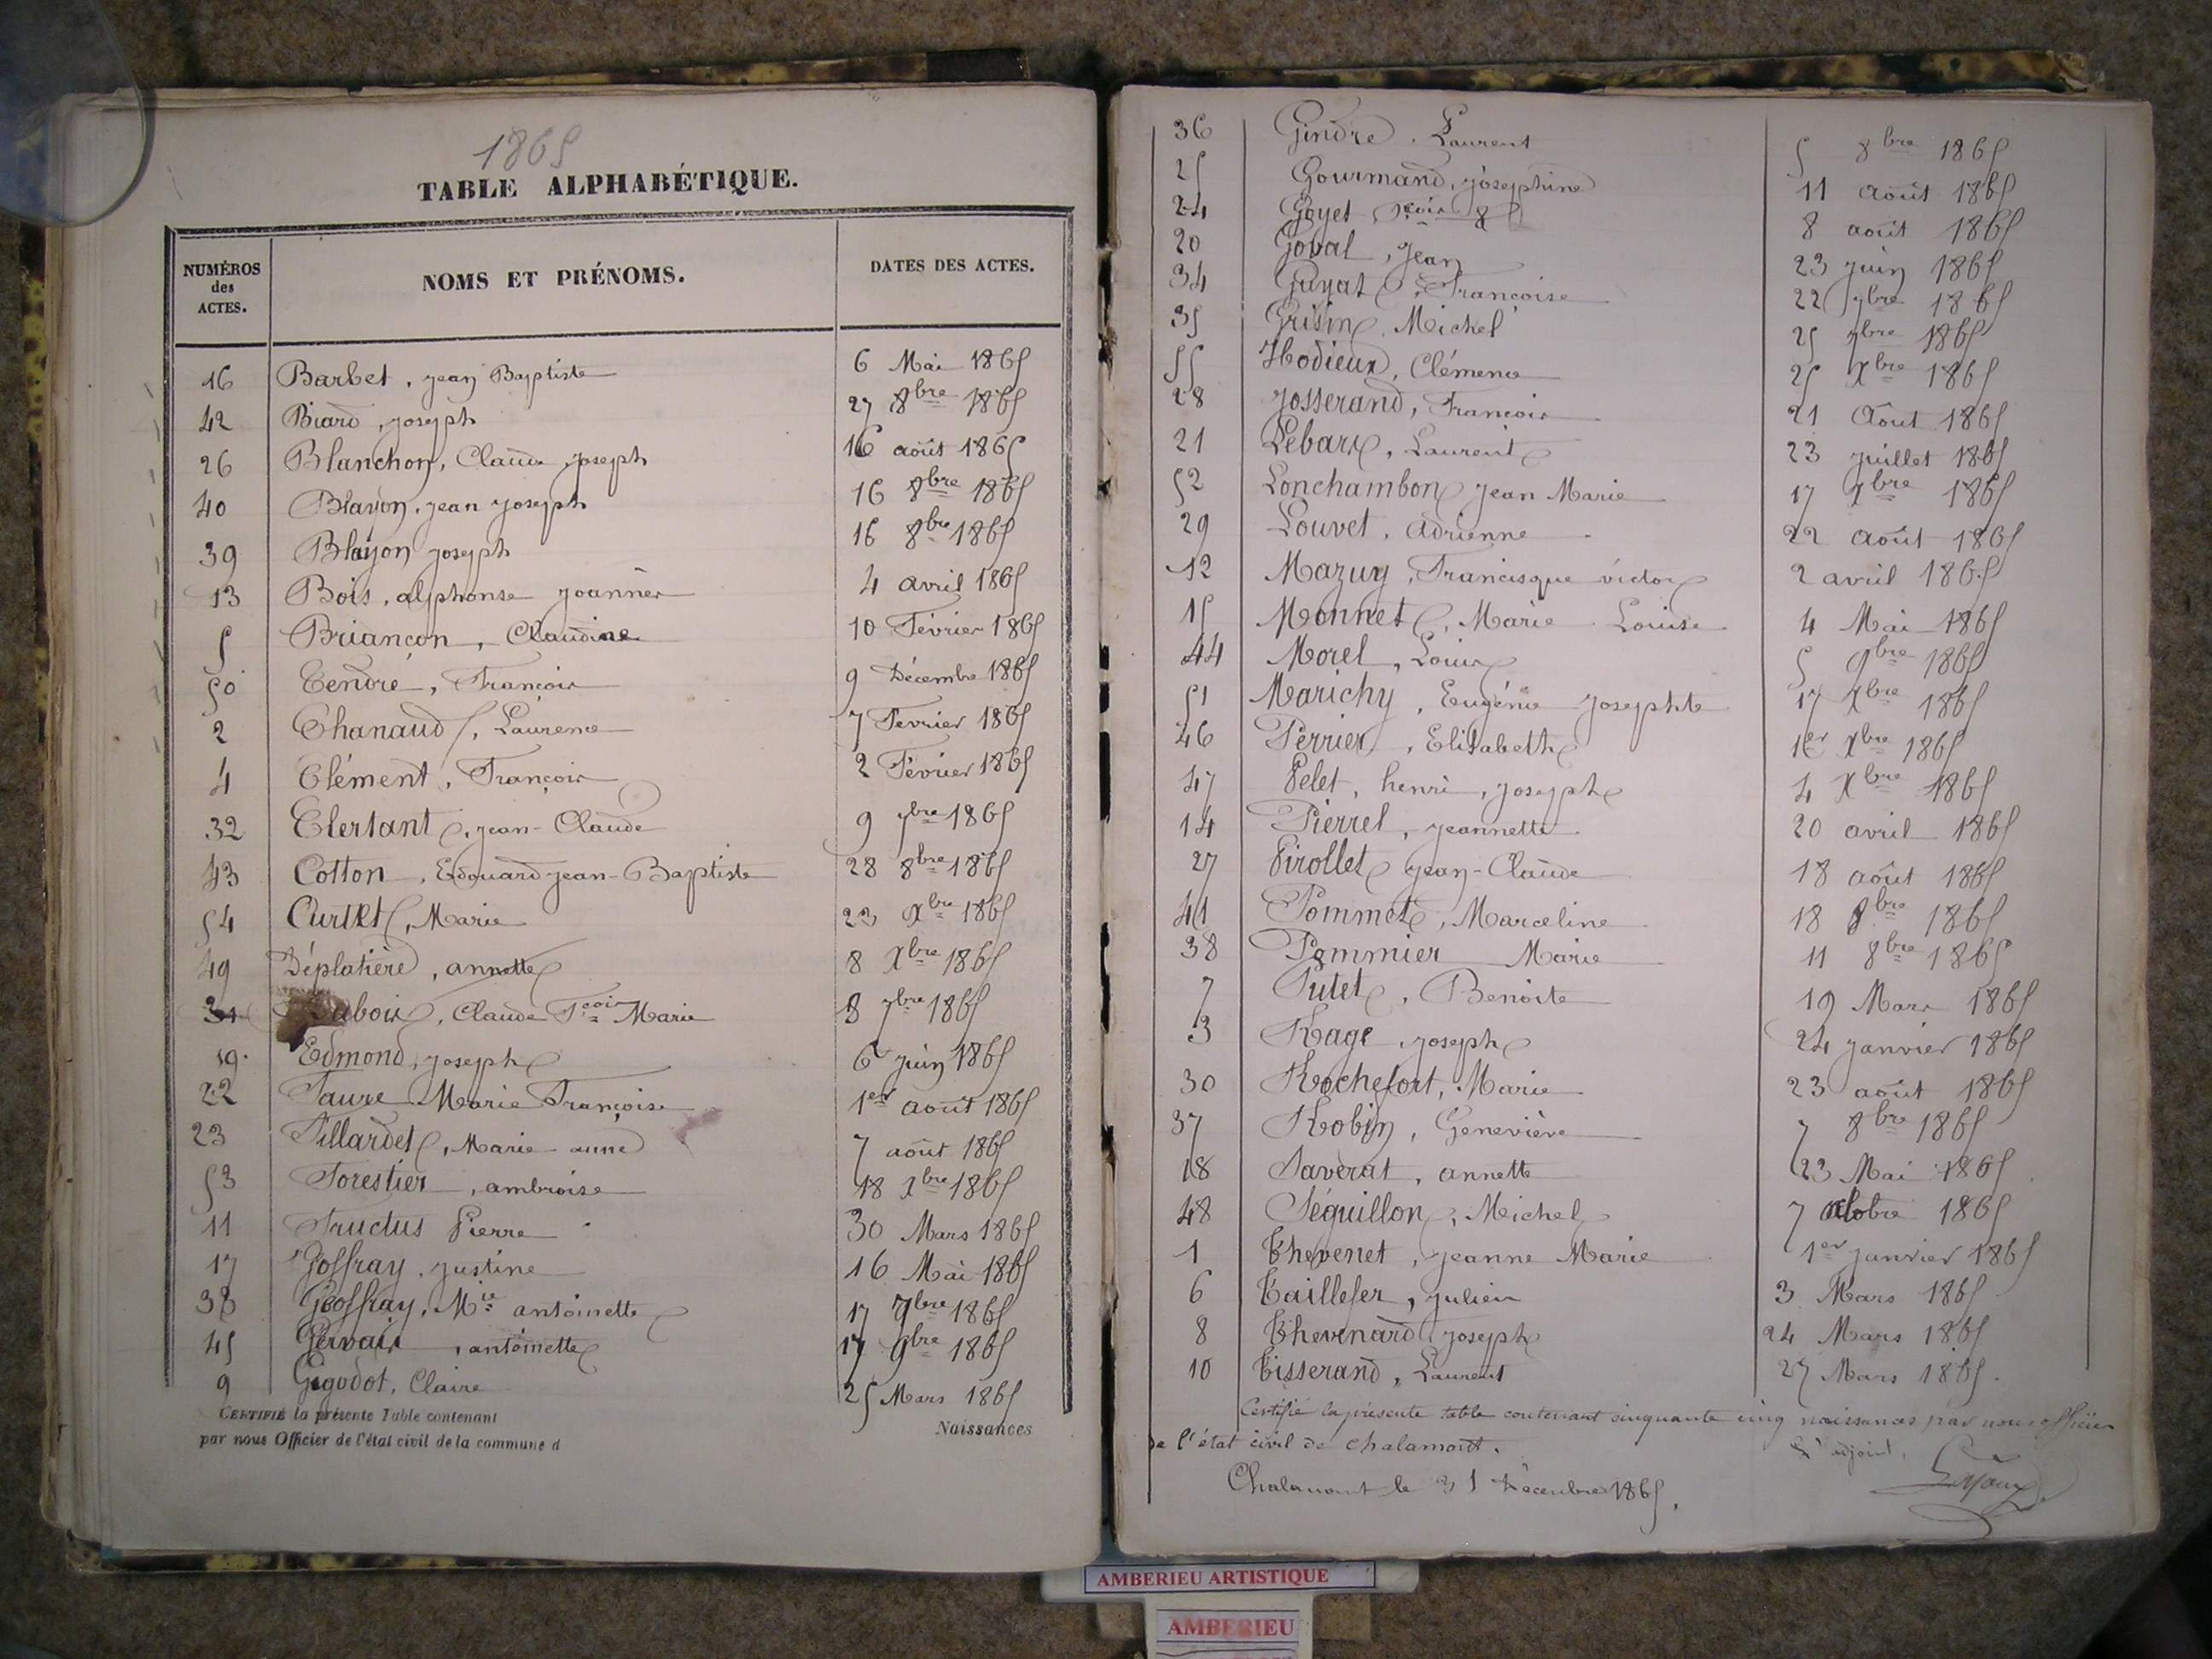 1865
TABLE ALPHABÉTIQUE.
NUMÉROS des ACTES. NOMS ET PRÉNOMS. DATES DES ACTES.
16 Barbet, jean Baptiste 6 Mai 1865
42 Biard, joseph 27 8bre 1865
26 Blanchon, Claude joseph 16 août 1865
40 Blayon, jean joseph 16 8bre 1865
39 Blayon joseph 16 8bre 1865
13 Bois, alphonse joannès 4 avril 1865
5 Briançon, Claudine 10 Février 1865
50 Cendre, François 9 Décembre 1865
2 Chanaud, Laurence 7 Fevrier 1865
4 Clément, François 2 Février 1865
32 Clertant, jean-Claude 9 7bre 1865
43 Cotton, Edouard-jean-Baptiste 28 8bre 1865
54 Curtet, Marie 23 Xbre 1865
49 Déplatière, annette 8 Xbre 1865
31 Dubois, Claude Fcois Marie 8 7bre 1865
19. Edmond, joseph 6 juin 1865
22 Faure Marie Françoise 1er août 1865
23 Fillardet, Marie anne 7 août 1865
53 Forestier, ambroise 18 Xbre 1865
11 Fructus Pierre 30 Mars 1865
17 Goffray, justine 16 Mai 1865
38 Geoffray, Mie antoinette 17 7bre 1865
45 Gervais, antoinette 17 9bre 1865
9 Gogodot, Claire 25 Mars 1865
CERTIFIÉ la présente Table contenant Naissances
par nous Officier de l'état civil de la commune d
36 Gindre, Laurent 5 8bre 1865
25 Gourmand, joséphine 11 août 1865
24 Goyet 8 août 1865
20 Goval, jean 23 juin 1865
34 Guyat, Françoise 22 7bre 1865
35 Grisin, Michel 25 7bre 1865
55 Hodieux, Clémence 25 Xbre 1865
28 josserand, François 21 Août 1865
21 Lebars, Laurent 23 juillet 1865
52 Lonchambon jean Marie 17 Xbre 1865
29 Louvet, adrienne 22 août 1865
12 Mazuy, Francisque victor 2 avril 1865
15 Monnet, Marie Louise 4 Mai 1865
44 Morel, Louis 5 9bre 1865
51 Marichy, Eugénie josephte 17 Xbre 1865
46 Perrier, Elisabeth 1er Xbre 1865
47 Pelet, henri, joseph 4 Xbre 1865
14 Pierrel, jeannette 20 avril 1865
27 Pirollet jean-Claude 18 août 1865
41 Pommet, Marceline 18 8bre 1865
38 Pommier Marie 11 8bre 1865
7 Putet, Benoite 19 Mars 1865
3 Rage, joseph 24 janvier 1865
30 Rochefort, Marie 23 août 1865
37 Robin, Geneviève 7 8bre 1865
18 Saverat, annette 23 Mai 1865
48 Séguillon, Michel 7 octobre 1865
1 Thevenet, jeanne Marie 1er janvier 1865
6 Taillefer, julien 3 Mars 1865
8 Thevenard joseph 24 Mars 1865
10 Tisserand, Laurent 27 Mars 1865.
Certifié la présente table contenant cinquante cinq naissances par nous officier
de l'état civil de Chalamont.
L'adjoint,
Chalamont le 31 Décembre 1865.
AMBERIEU ARTISTIQUE
AMBERIEU